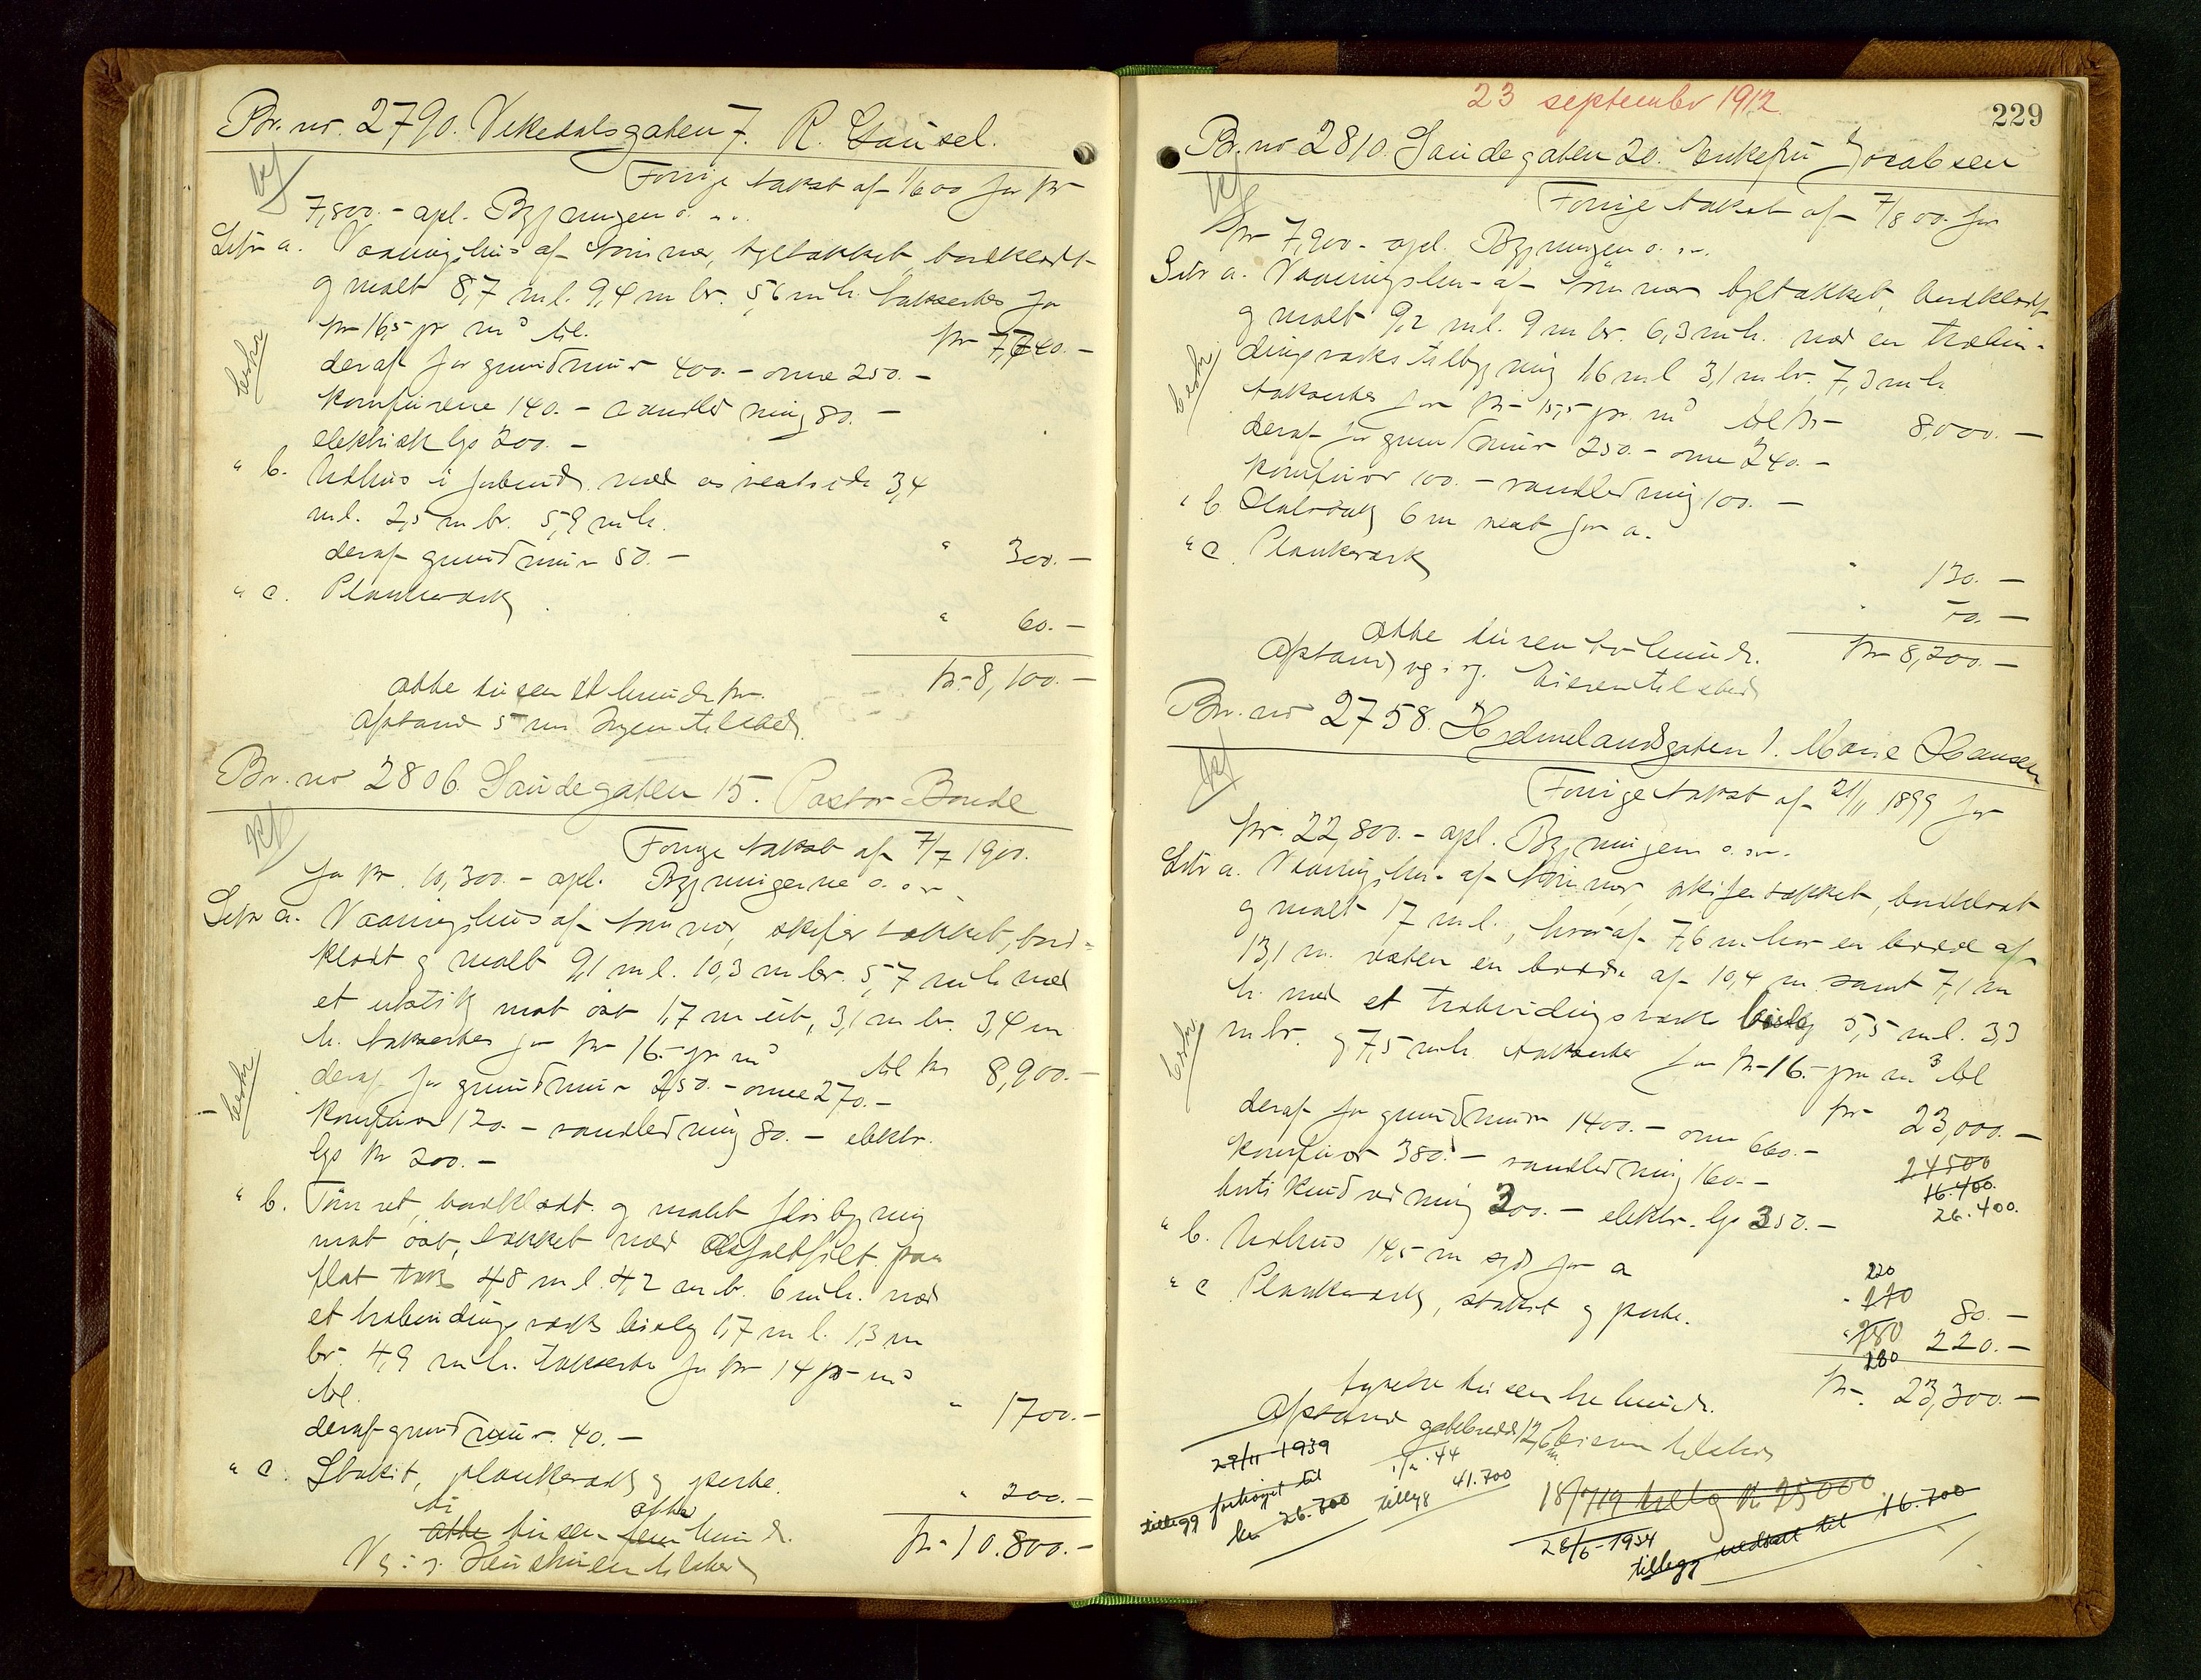 Br. nr. 2790. Vikedalsgaten 7. R. Gausel.
Forrige takst af 1/6 00 for kr
7,800.- opl. Bygningen o. s. v.
Litr a. Vaaningshus af tømmer, tegltækket, bordklædt
og malt 8,7 m l. 9,4 m br. 5,6 m h. takseres for
kr 16,5 pr m³ til kr 7,740.-
deraf for grundmur 400.- ovne 250.-
komfurene 140.- vandledning 80.-
elektrisk lys 200.-
" b. Udhus i forbind. med vestside 3,4
m l. 2,5 m br. 5,9 m h.
deraf grundmur 50.- " 300.-
" c. Plankeværk " 60.-
kr. 8,100.-
otte tusen et hundr kr.
Afstand 5 m Ingen tilsted.
Br. nr 2806. Saudegaten 15. Pastor Bonde
Forrige takst af 7/7 1900.
for kr. 10,300.- opl. Bygningerne o. s. v
Litr a. Vaaningshus af tømmer, skifer tækket, bord-
klædt og malt 9,1 m l. 10,3 m br. 5,7 m h med
et utstik mot øst 1,7 m ut, 3,1 m br. 3,4 m
h. takseres for kr 16.- pr m³ til kr 8,900.-
deraf for grundmur 250.- ovne 270.-
komfur 120.- vandledning 80.- elektr.
lys kr 200.-
" b. Tømret, bordklædt og malt fløibygning
mot øst, tækket med asfaltfilt paa
flat tak 4,8 m l. 4,2 m b. 6 m h. med
et træbindingsværks bislag 1,7 m l. 1,3 m
br. 4,9 m h. takseres for kr 14 pr m³
til " 1700.-
deraf grundmur 40.-
" c. Stakit, plankeværk og porte. " 200.-
ti otte
otte tusen fem hundr. kr. 10.800.-
V. s. g. Hustruen tilsted
23 september 1912.
229
Br. nr 2810. Saudegaten 20. Enkefru Jacobsen
Forrige takst af 7/8 00. for
kr 7,900.- opl. Bygningen o. s. v.
Litr a. Vaaningshus af tømmer tegltækket, bordklædt
og malt 9,2 m l. 9 m br. 6,3 m h. med en træbin-
dingsværks tilbygning 1,6 m l 3,1 m br. 7,3 m h
takseres for kr 15,5 pr. m³ til kr 8,000.-
deraf for grundmur 250.- ovne 240.-
komfur 100.- vandledning 100.-
" b. 6 m vest for a. " 130.-
" c. Plankeværk " 70.-
otte tusen to hundr. kr 8,200.-
Afstand v. s. g. Eieren tilsted
Br. nr 2758. Hjelmelandsgaten 1. Marie Hansen
Forrige takst af 21/11 1899 for
kr. 22,800.- opl. Bygningen o. s. v.
Litr a. Vaaningshus af tømmer, skifertækket, bordklædt
og malt 17 m l., hvoraf 7,6 m har en bredde af
13,1 m. resten en bredde af 10,4 m samt 7,1 m
h. med et træbindingsværk bislag 5,5 m l. 3,3
m br. og 7,5 m h. takseres for kr 16.- pr m³ til
kr 23,000.-
deraf for grundmur 1400.- ovne 660.-
komfur 380.- vandledning 160.-
24500
16.400
26.400.
butikindredning 300.- elektr. lys 350.-
" b. Udhus 14,5 m syd for a
220
" 270 80.-
" c Plankeværk, stakit og porte. " 280 220.-
280
kr. 23,300.-
tyvetre tusen tre hundr.
Afstand gatebredd 12,6 m. Eieren tilsted
29/11-1939
tillegg forhøiet til
kr 26.700
1/2.44
tillegg 41.700
18/7 19 tillæg kr 25000
26/6-1934
tillegg nedsatt til 16.700